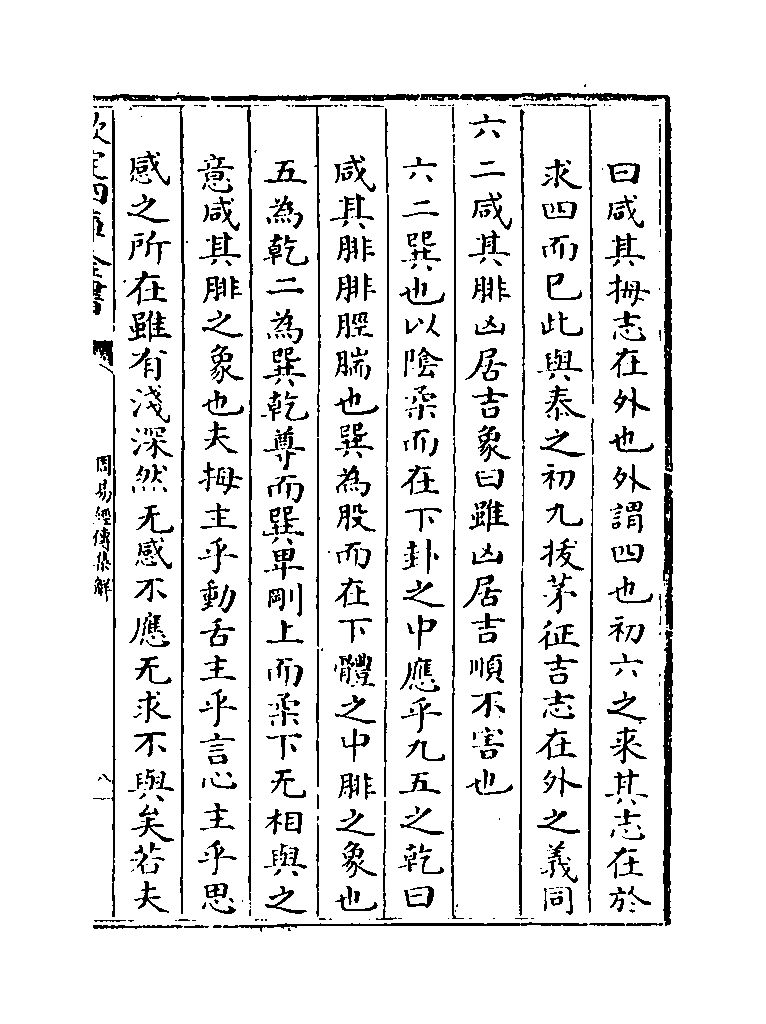 曰咸其拇志在外也外謂四也初六之来其志在於
求四而已此與泰之初九拔茅征吉志在外之義同
六二咸其腓凶居吉象曰雖凶居吉順不害也
六二巽也以陰柔而在下卦之中應乎九五之乾曰
咸其腓腓脛腨也巽為股而在下體之中腓之象也
五為乾二為巽乾尊而巽卑剛上而柔下无相與之
意咸其腓之象也夫拇主乎動舌主乎言心主乎思
感之所在雖有淺深然无感不應无求不與矣若夫
欽定四庫全書
周易經傳集解
八